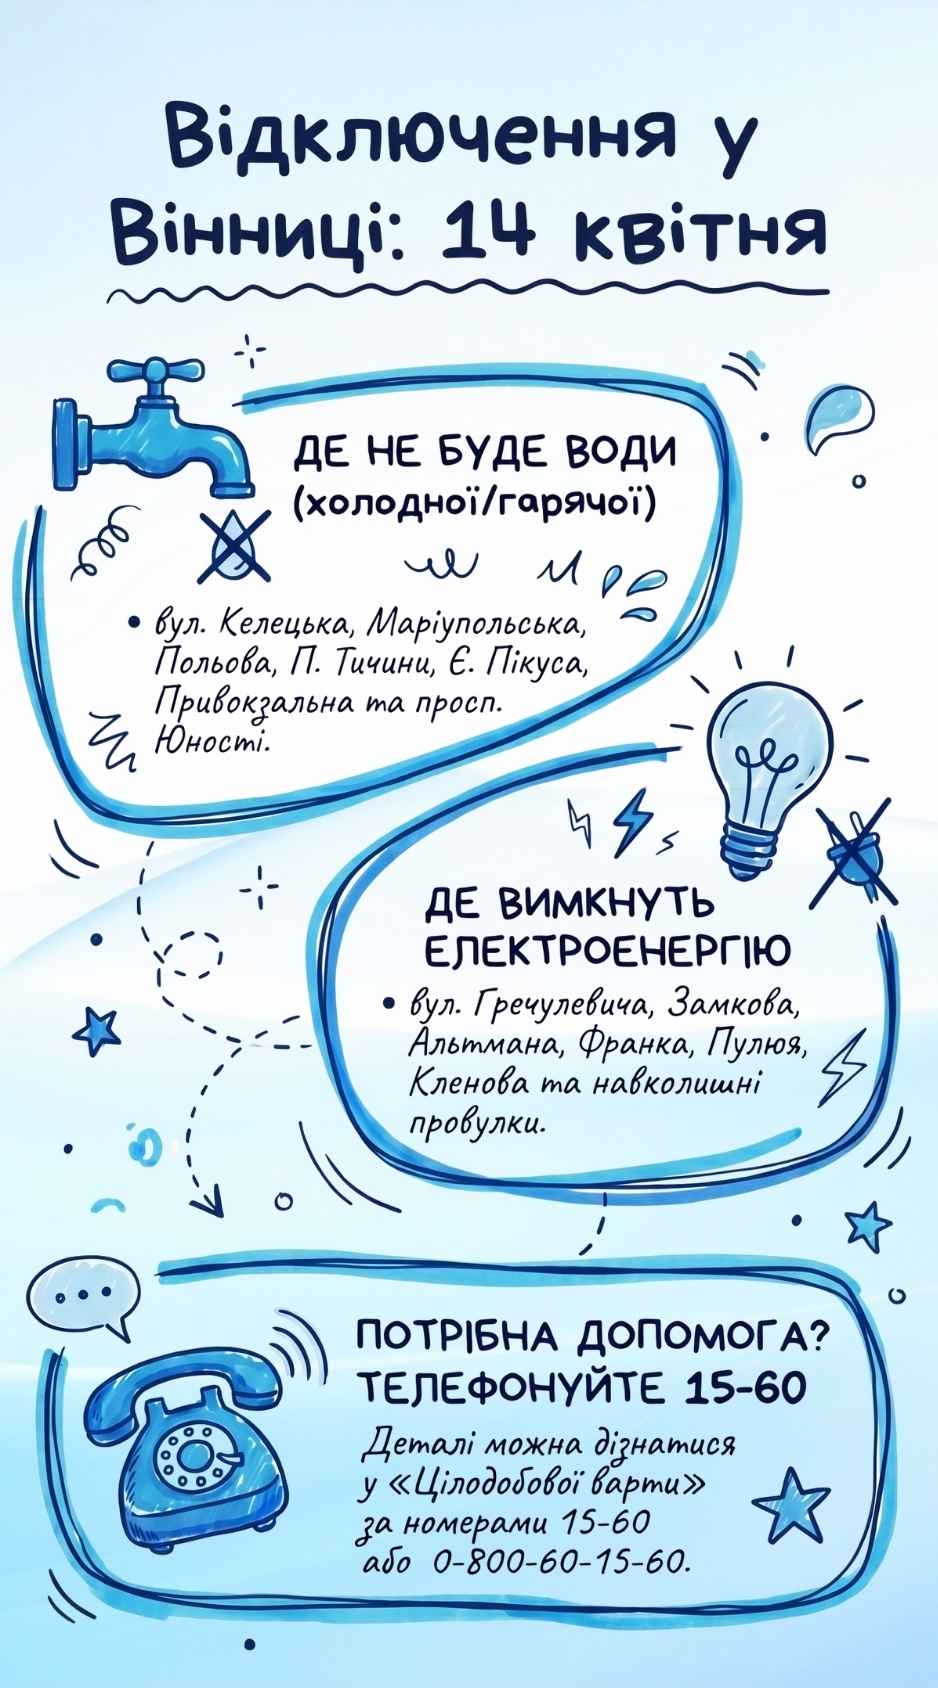 Відключення у
Вінниці: 14 квітня
ДЕ НЕ БУДЕ ВОДИ
(холодної/гарячої)
• вул. Келецька, Маріупольська,
Польова, П. Тичини, Є. Пікуса,
Привокзальна та просп.
Юності.
ДЕ ВИМКНУТЬ
ЕЛЕКТРОЕНЕРГІЮ
• вул. Гречулевича, Замкова,
Альтмана, Франка, Пулюя,
Кленова та навколишні
провулки.
ПОТРІБНА ДОПОМОГА?
ТЕЛЕФОНУЙТЕ 15-60
Деталі можна дізнатися
у «Цілодобової варти»
за номерами 15-60
або 0-800-60-15-60.